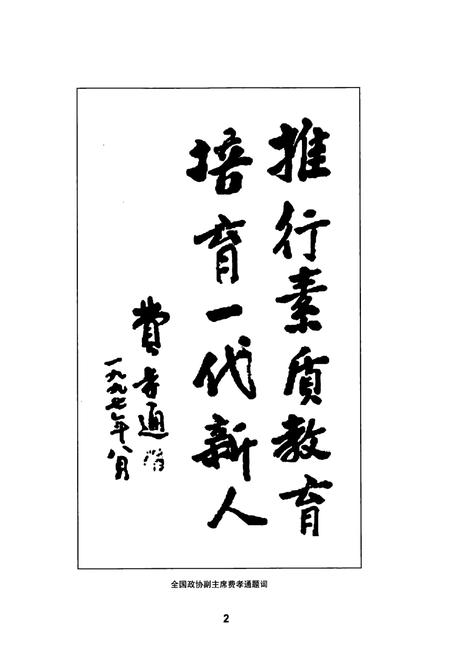 推行素质教育
培育一代新人
费孝通
一九九七年八月
全国政协副主席费孝通题词
2